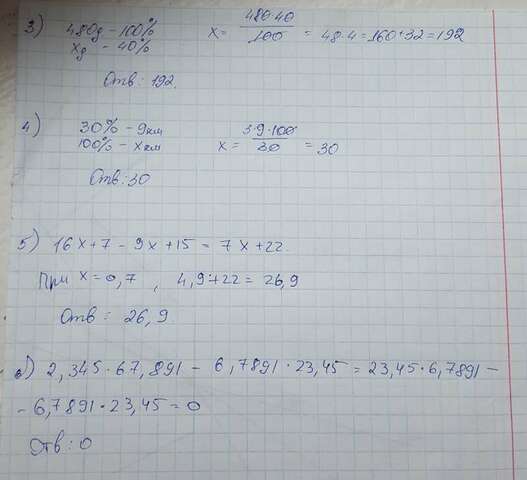 3) 480g - 100% x = 480·40 / 100 = 48·4 = 160+32 = 192
xg - 40%
Отв: 192.
4) 30% - 9км
100% - x км x = 3·9·100 / 30 = 30
Отв: 30
5) 16x+7 - 9x+15 = 7x+22.
При x = 0,7 , 4,9+22 = 26,9
Отв: 26,9
) 2,345·67,891 - 6,7891·23,45 = 23,45·6,7891 -
- 6,7891·23,45 = 0
Отв: 0